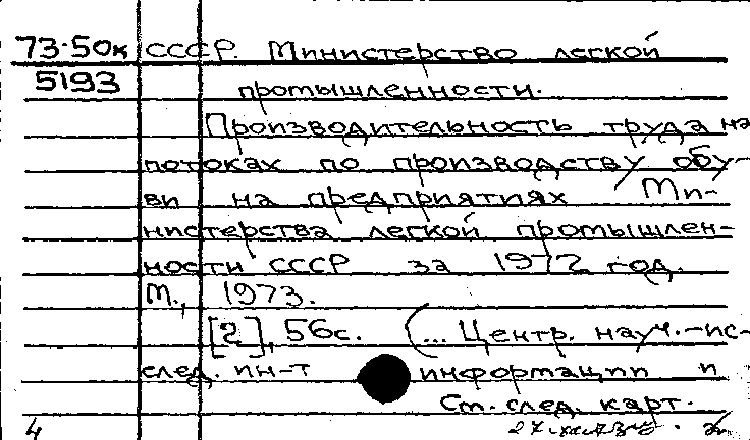 73-50к СССР. Министерство легкой
5193 промышленности.
Производительность труда на
потоках по производству обу-
ви на предприятиях Ми-
нистерства легкой промышлен-
ности СССР за 1972 год.
М., 1973.
[2], 56с. (... Центр. науч.-ис-
след. ин-т информации и
См. след. карт.
4